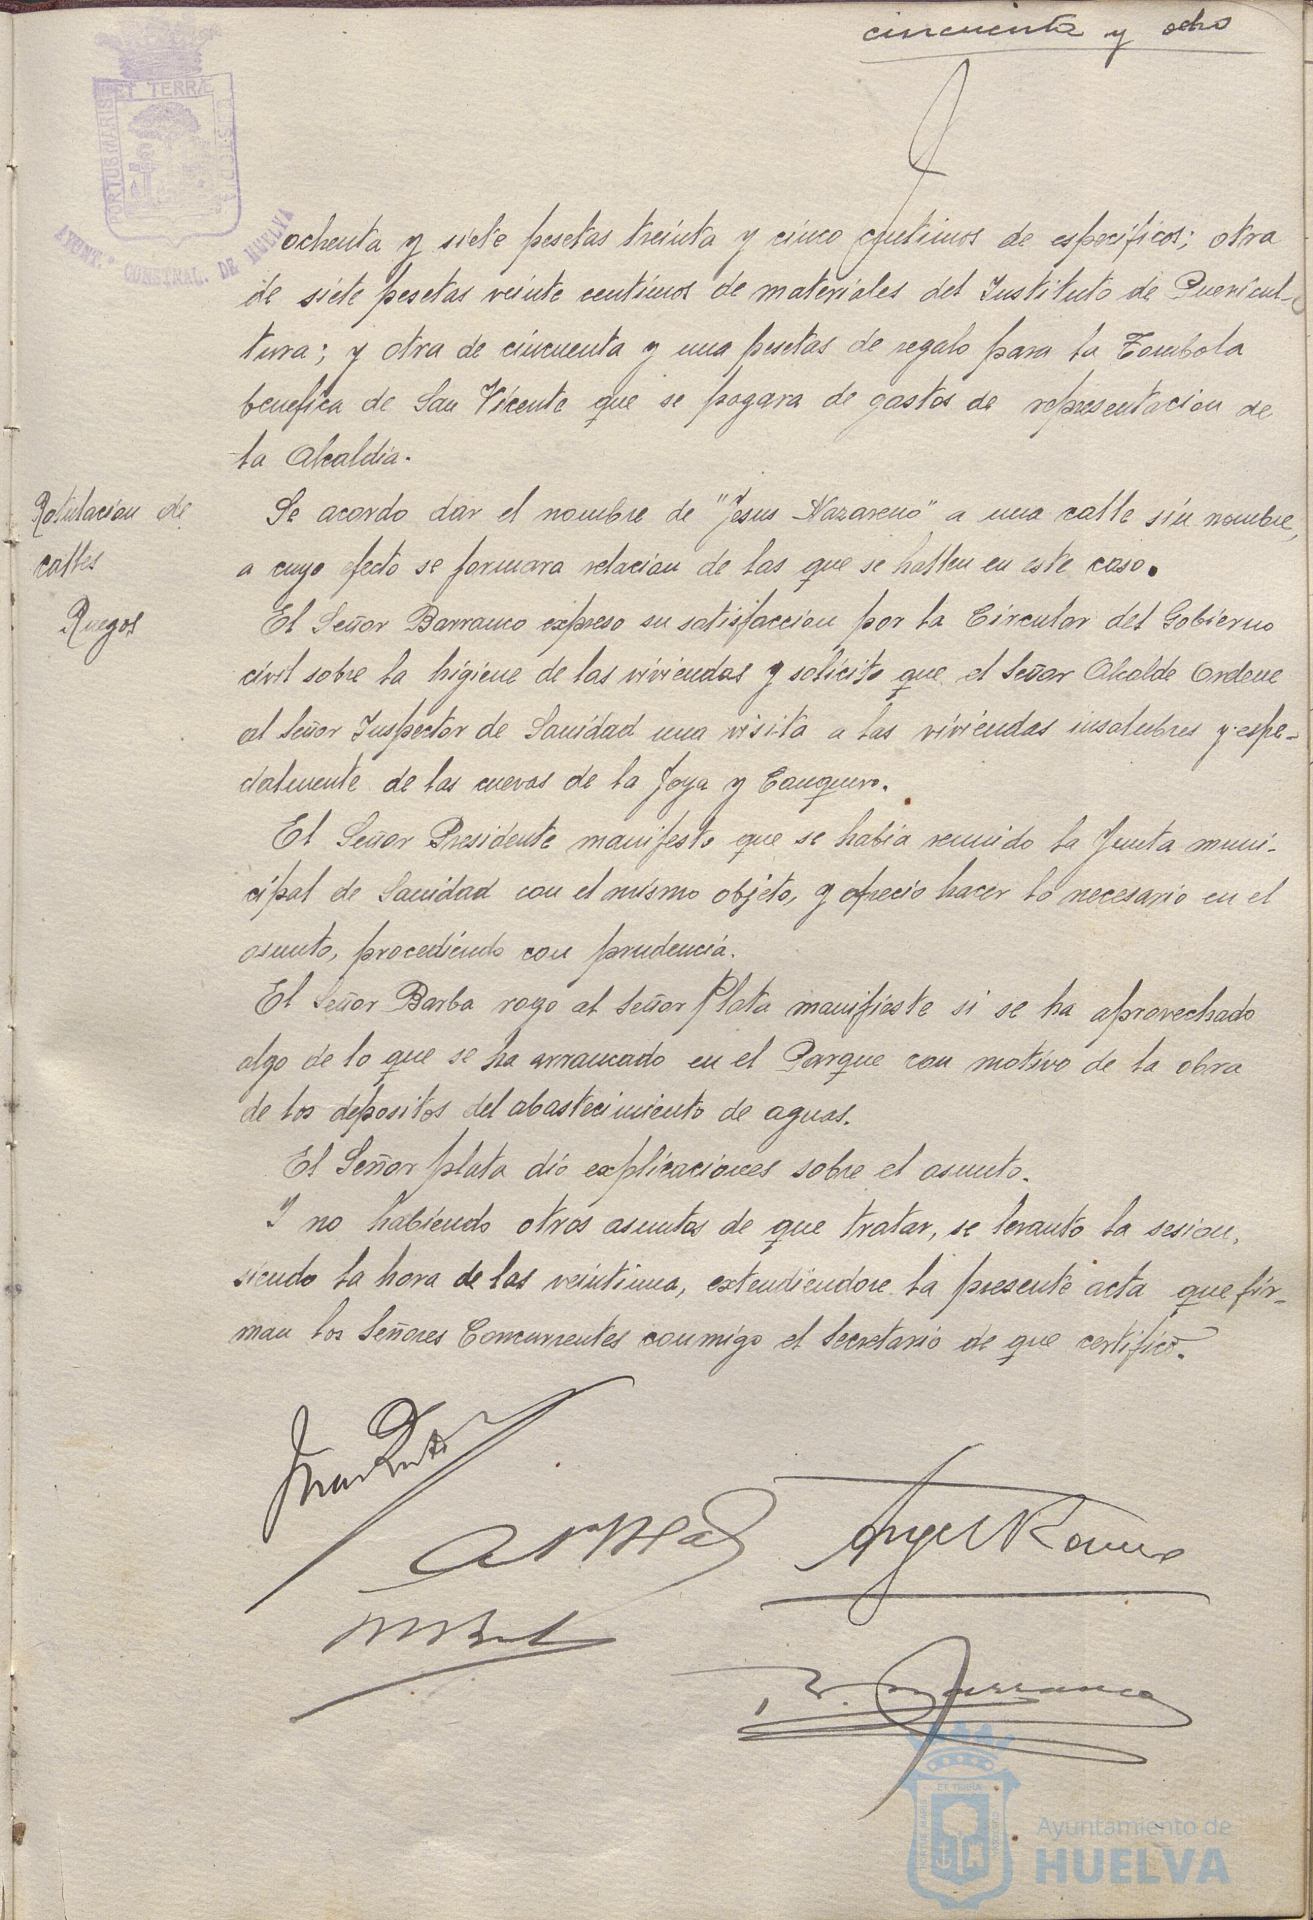 cincuenta y ocho
ET TERRÆ
PORTUS MARIS
CUSTODIA
AYUNT.º CONSTNAL. DE HUELVA
ochenta y siete pesetas treinta y cinco centimos de especificos; otra
de siete pesetas veinte centimos de materiales del Instituto de Puericul-
tura; y otra de cincuenta y una pesetas de regalo para la Tombola
benefica de San Vicente que se pagara de gastos de representacion de
la Alcaldia.
Rotulacion de
calles
Se acordo dar el nombre de "Jesus Nazareno" a una calle sin nombre,
a cuyo efecto se formara relacion de las que se hallen en este caso.
Ruegos
El Señor Barranco expreso su satisfaccion por la Circular del Gobierno
civil sobre la higiene de las viviendas y solicito que el Señor Alcalde Ordene
al Señor Inspector de Sanidad una visita a las viviendas insalubres y espe-
cialmente de las cuevas de la Joya y Conquero.
El Señor Presidente manifesto que se habia reunido la Junta muni-
cipal de Sanidad con el mismo objeto, y ofrecio hacer lo necesario en el
asunto, procediendo con prudencia.
El Señor Barba rogo al Señor Plata manifieste si se ha aprovechado
algo de lo que se ha arrancado en el Parque con motivo de la obra
de los depositos del abastecimiento de aguas.
El Señor plata dió explicaciones sobre el asunto.
Y no habiendo otros asuntos de que tratar, se levanto la sesion,
siendo la hora de las veintiuna, extendiendose la presente acta que fir-
man los Señores Concurrentes conmigo el Secretario de que certifico.
Angel Romero
Barranco
ET TERRA
Ayuntamiento de
HUELVA